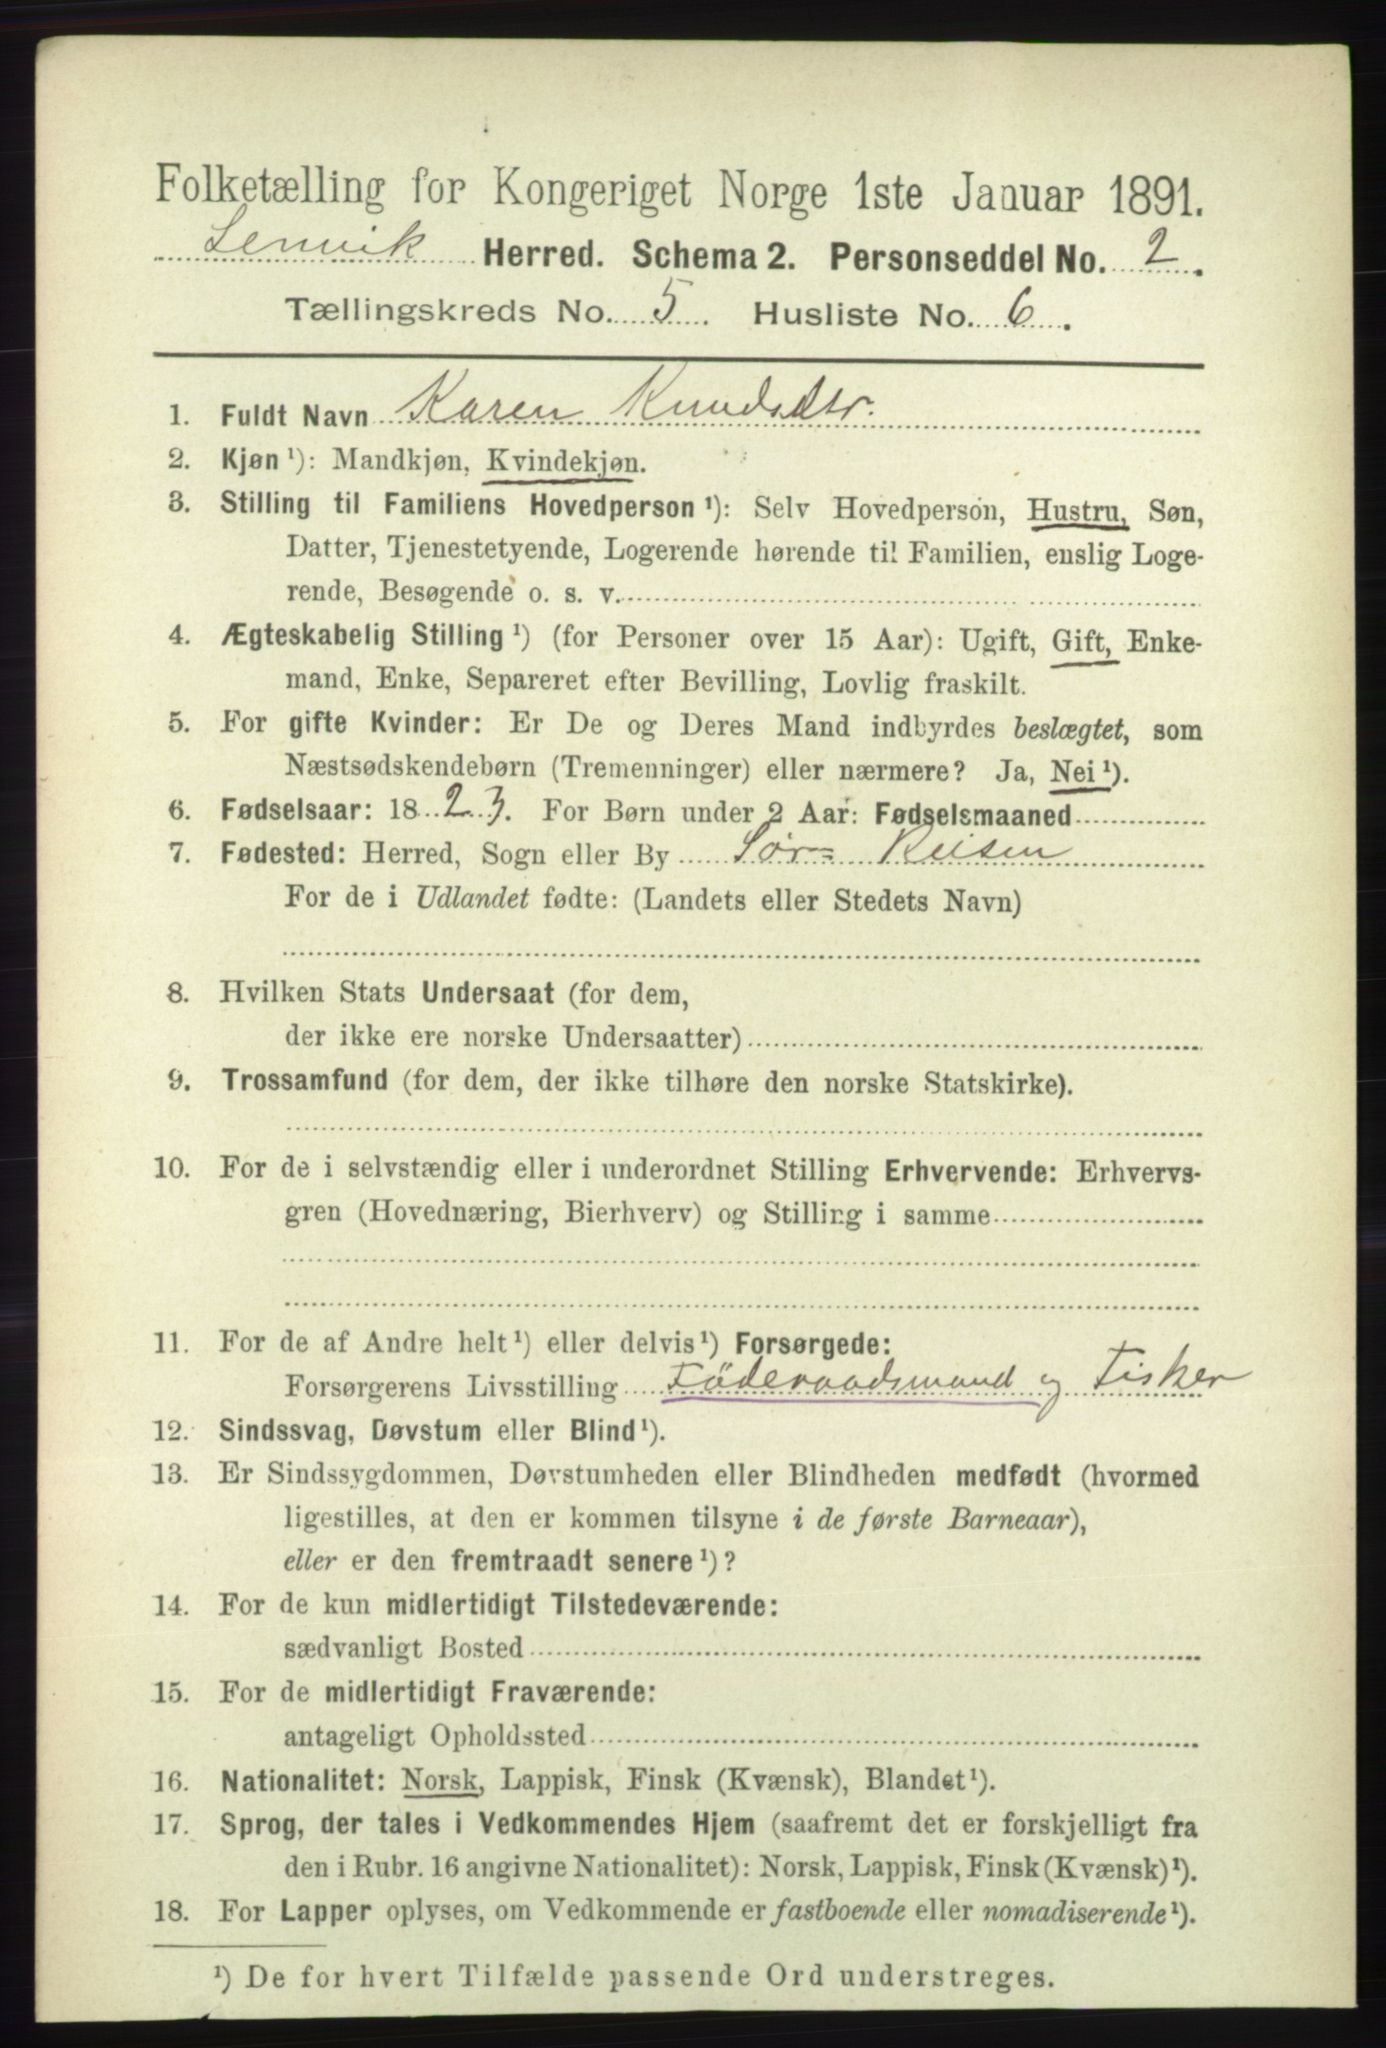 Folketælling for Kongeriget Norge 1ste Januar 1891.
Lenvik Herred. Schema 2. Personseddel No. 2.
Tællingskreds No. 5. Husliste No. 6.
1. Fuldt Navn Karen Knudsdtr.
2. Kjøn¹): Mandkjøn, Kvindekjøn.
3. Stilling til Familiens Hovedperson¹): Selv Hovedperson, Hustru, Søn,
Datter, Tjenestetyende, Logerende hørende til Familien, enslig Loge-
rende, Besøgende o. s. v.
4. Ægteskabelig Stilling¹) (for Personer over 15 Aar): Ugift, Gift, Enke-
mand, Enke, Separeret efter Bevilling, Lovlig fraskilt.
5. For gifte Kvinder: Er De og Deres Mand indbyrdes beslægtet, som
Næstsødskendebørn (Tremenninger) eller nærmere? Ja, Nei¹).
6. Fødselsaar: 1823. For Børn under 2 Aar: Fødselsmaaned
7. Fødested: Herred, Sogn eller By Sør-Reisen
For de i Udlandet fødte: (Landets eller Stedets Navn)
8. Hvilken Stats Undersaat (for dem,
der ikke ere norske Undersaatter)
9. Trossamfund (for dem, der ikke tilhøre den norske Statskirke).
10. For de i selvstændig eller i underordnet Stilling Erhvervende: Erhvervs-
gren (Hovednæring, Bierhverv) og Stilling i samme
11. For de af Andre helt¹) eller delvis¹) Forsørgede:
Forsørgerens Livsstilling Föderaadsmand og Fisker
12. Sindssvag, Døvstum eller Blind¹).
13. Er Sindssygdommen, Døvstumheden eller Blindheden medfødt (hvormed
ligestilles, at den er kommen tilsyne i de første Barneaar),
eller er den fremtraadt senere¹)?
14. For de kun midlertidigt Tilstedeværende:
sædvanligt Bosted
15. For de midlertidigt Fraværende:
antageligt Opholdssted
16. Nationalitet: Norsk, Lappisk, Finsk (Kvænsk), Blandet¹).
17. Sprog, der tales i Vedkommendes Hjem (saafremt det er forskjelligt fra
den i Rubr. 16 angivne Nationalitet): Norsk, Lappisk, Finsk (Kvænsk)¹).
18. For Lapper oplyses, om Vedkommende er fastboende eller nomadiserende¹).
¹) De for hvert Tilfælde passende Ord understreges.